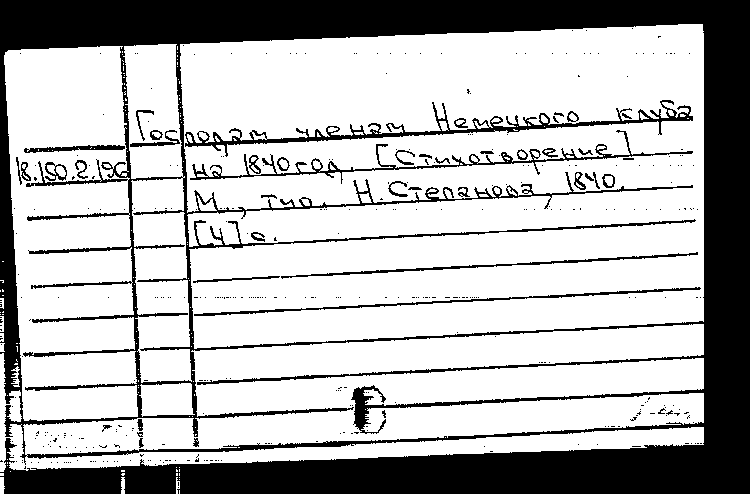 Господам членам Немецкого клуба
18.150.2.196 на 1840 год. [Стихотворение].
М., тип. Н. Степанова, 1840.
[4] с.